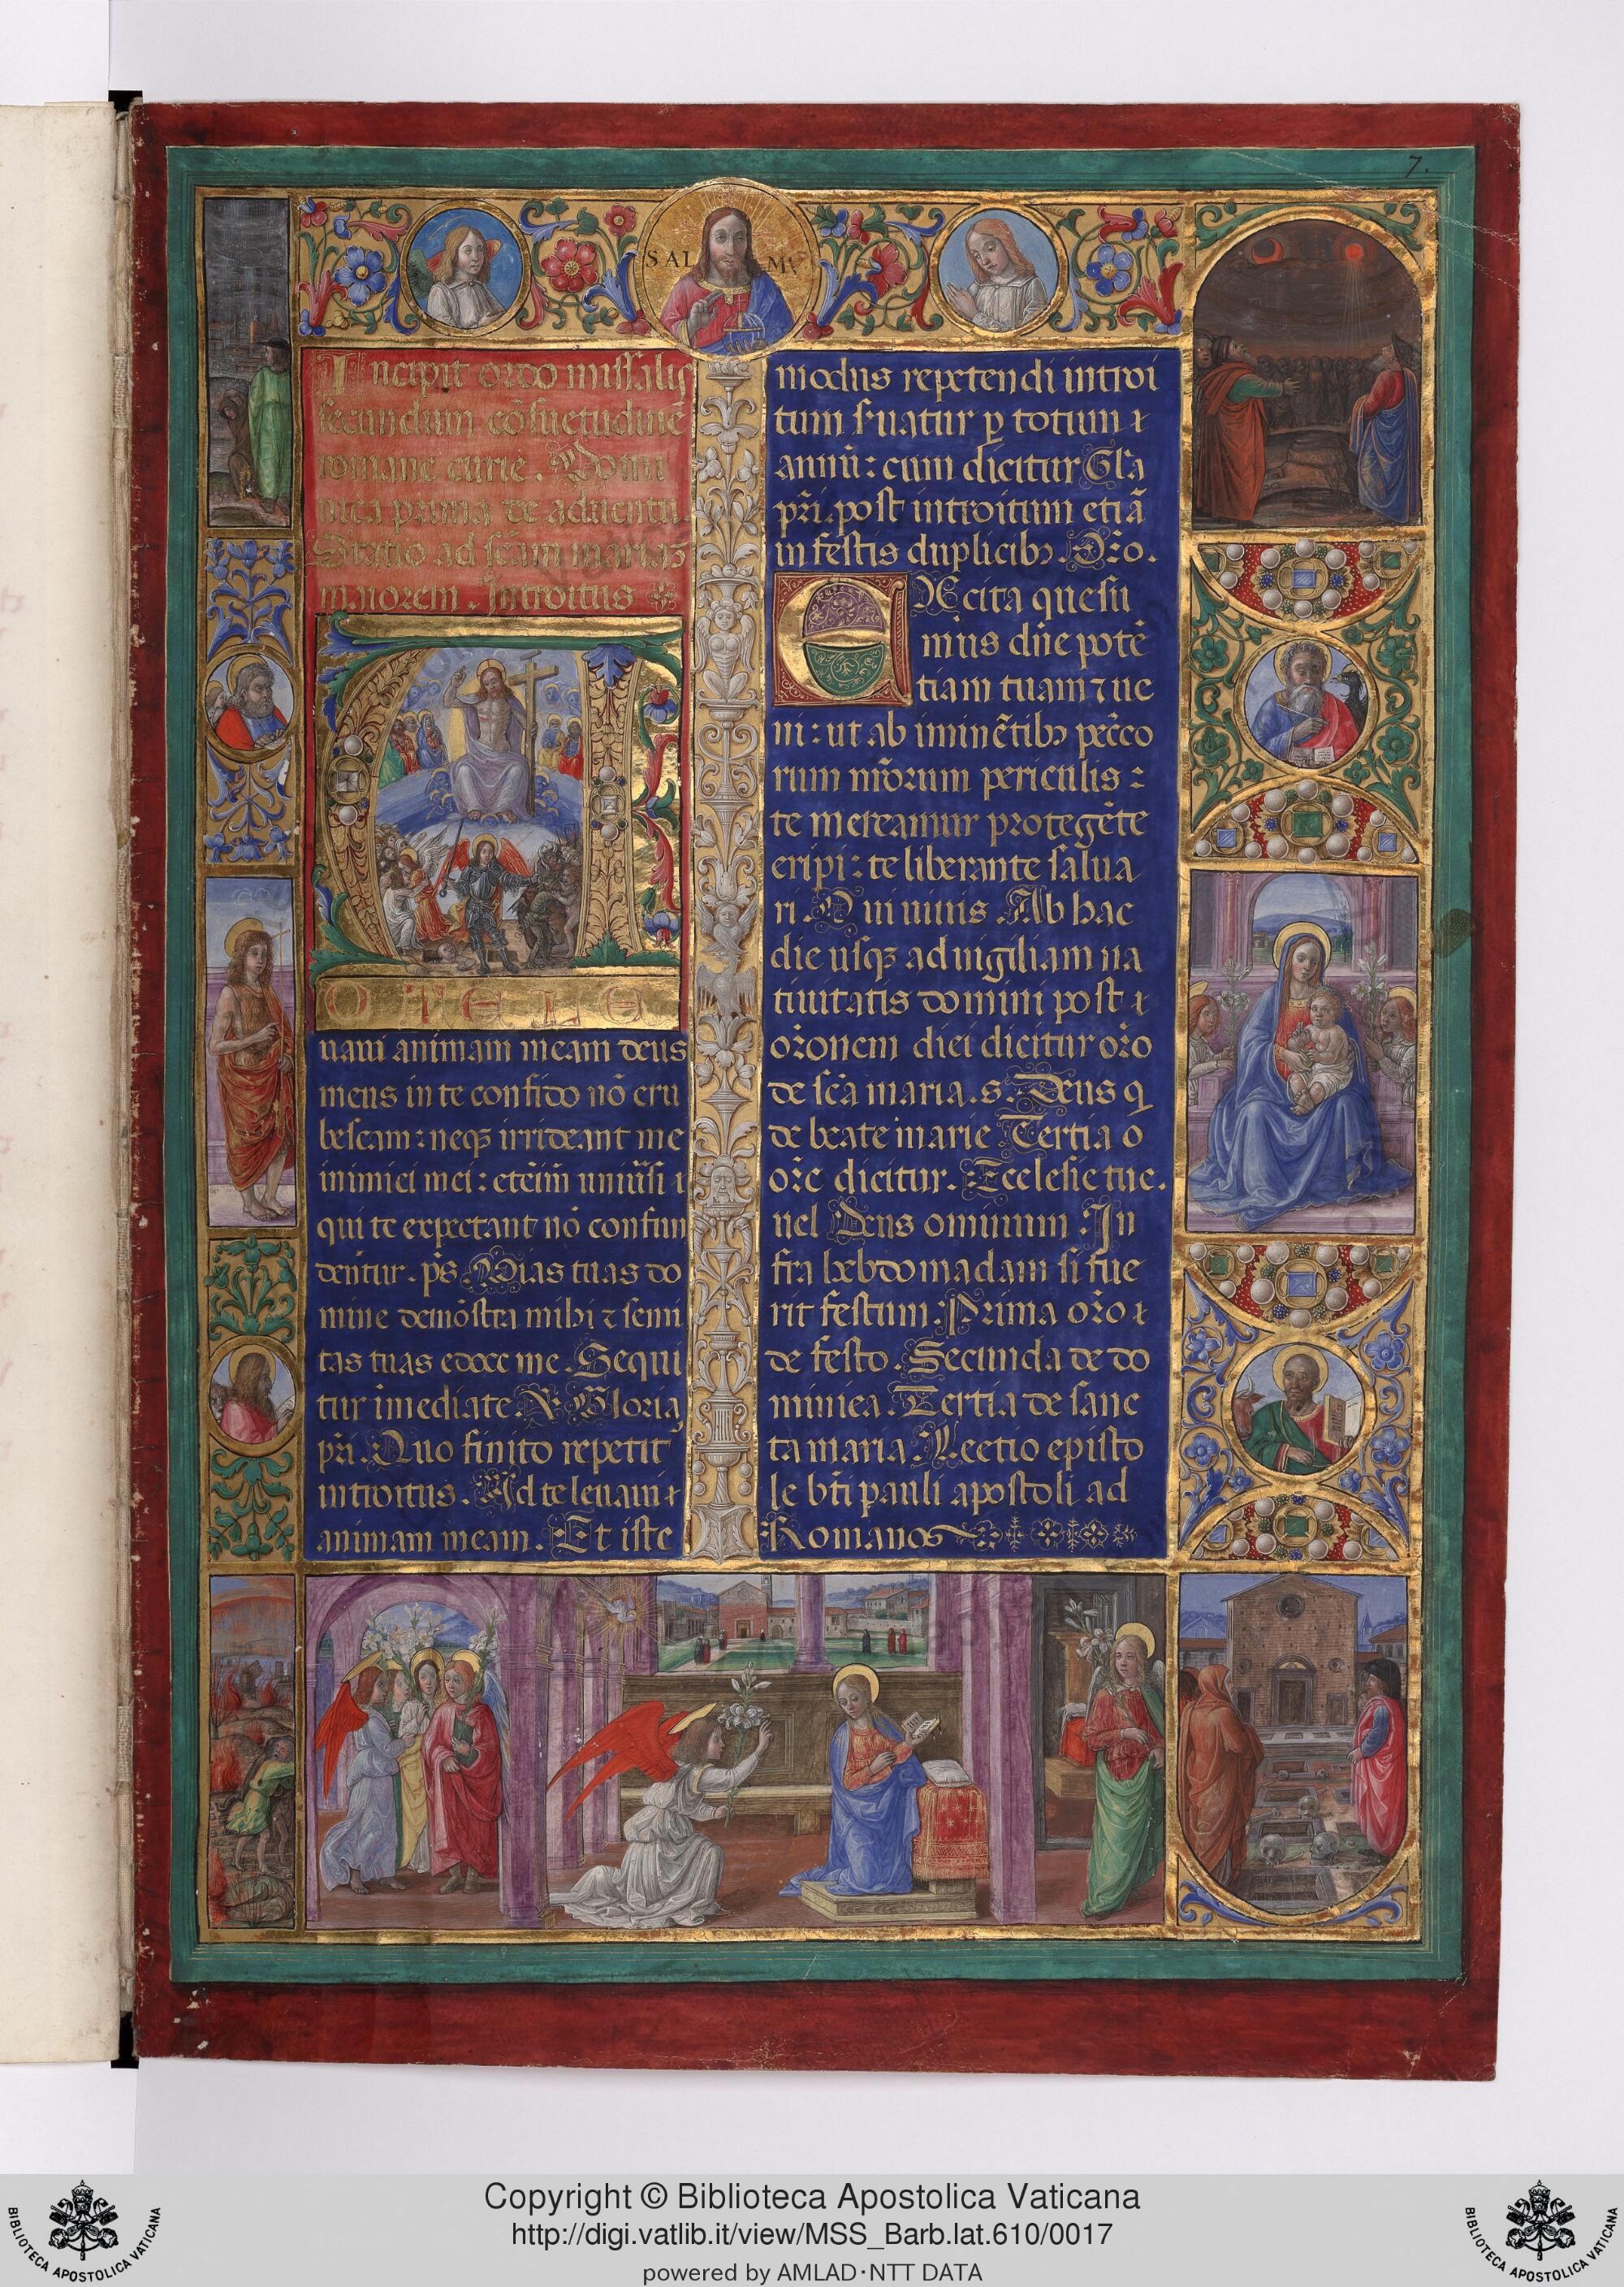 7.
SAL MV
Incipit ordo missalis
secundum cōsuetudinē
romane curie. Domi
nica prima de aduentu.
Statio ad scām mariaꝫ
maiorem. Introitus
A
D TE LE
uaui animam meam deus
meus in te confido nō eru
bescam: neqꝫ irrideant me
inimici mei: etēim uniūsi
qui te expectant nō confun
dentur. p̄s. Vias tuas do
mine demōstra mihi ⁊ semi
tas tuas edoce me. Sequi
tur īmediate. V Gloria
pr̄i. Quo finito repetit
introitus. Ad te leuaui
animam meam. Et iste
modus repetendi introi
tum s̄uatur ꝑ totum
annū: cum dicitur Gl̄a
pr̄i. post introitum etiā
in festis duplicibꝫ. Or̄o.
EXcita quesu
mus dn̄e potē
tiam tuam ⁊ ue
ni: ut ab iminētibꝫ pec̄co
rum nr̄orum periculis:
te mereamur protegēte
eripi: te liberante salua
ri. Qui uiuis. Ab hac
die usqꝫ ad uigiliam na
tiuitatis domini post
or̄onem diei dicitur or̄o
de scā maria. s. Deus q
de beate marie Tertia o
or̄e dicitur. Ecclesie tue.
uel Deus omnium. In
fra hebdomadam si fue
rit festum: Prima or̄o
de festo. Secunda de do
minica. Tertia de sanc
ta maria. Lectio episto
le bt̄i pauli apostoli ad
Romanos
Copyright © Biblioteca Apostolica Vaticana
http://digi.vatlib.it/view/MSS_Barb.lat.610/0017
powered by AMLAD·NTT DATA
BIBLIOTECA APOSTOLICA VATICANA
BIBLIOTECA APOSTOLICA VATICANA